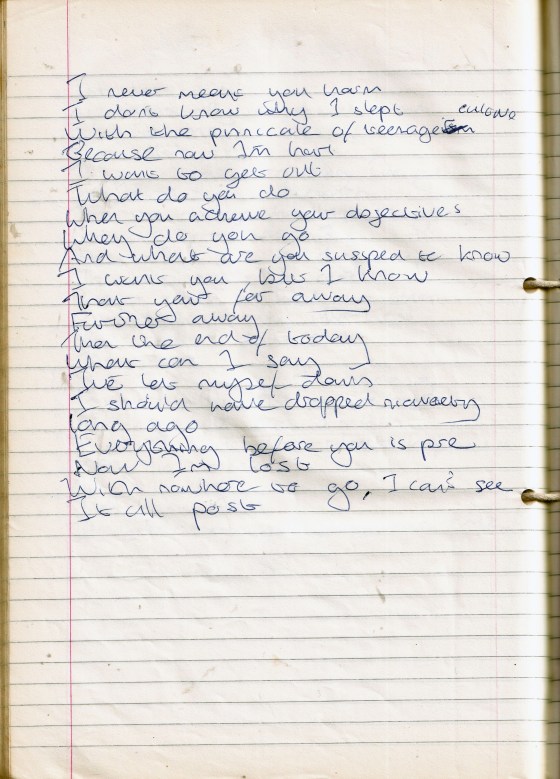 I never meant you harm
I dont know why I slept
With the pinnicale of teenage culture
Because now Im hurt
I want to get out
What do you do
When you achieve your objectives
Where do you go
And what are you sussped to know
I want you, but I know
That your far away
Further away
Then the end of today
What can I say
I've let myself down
I should have dropped
long ago
Everything before you is pre
Now I'm lost
With nowhere to go, I can't see
It all past